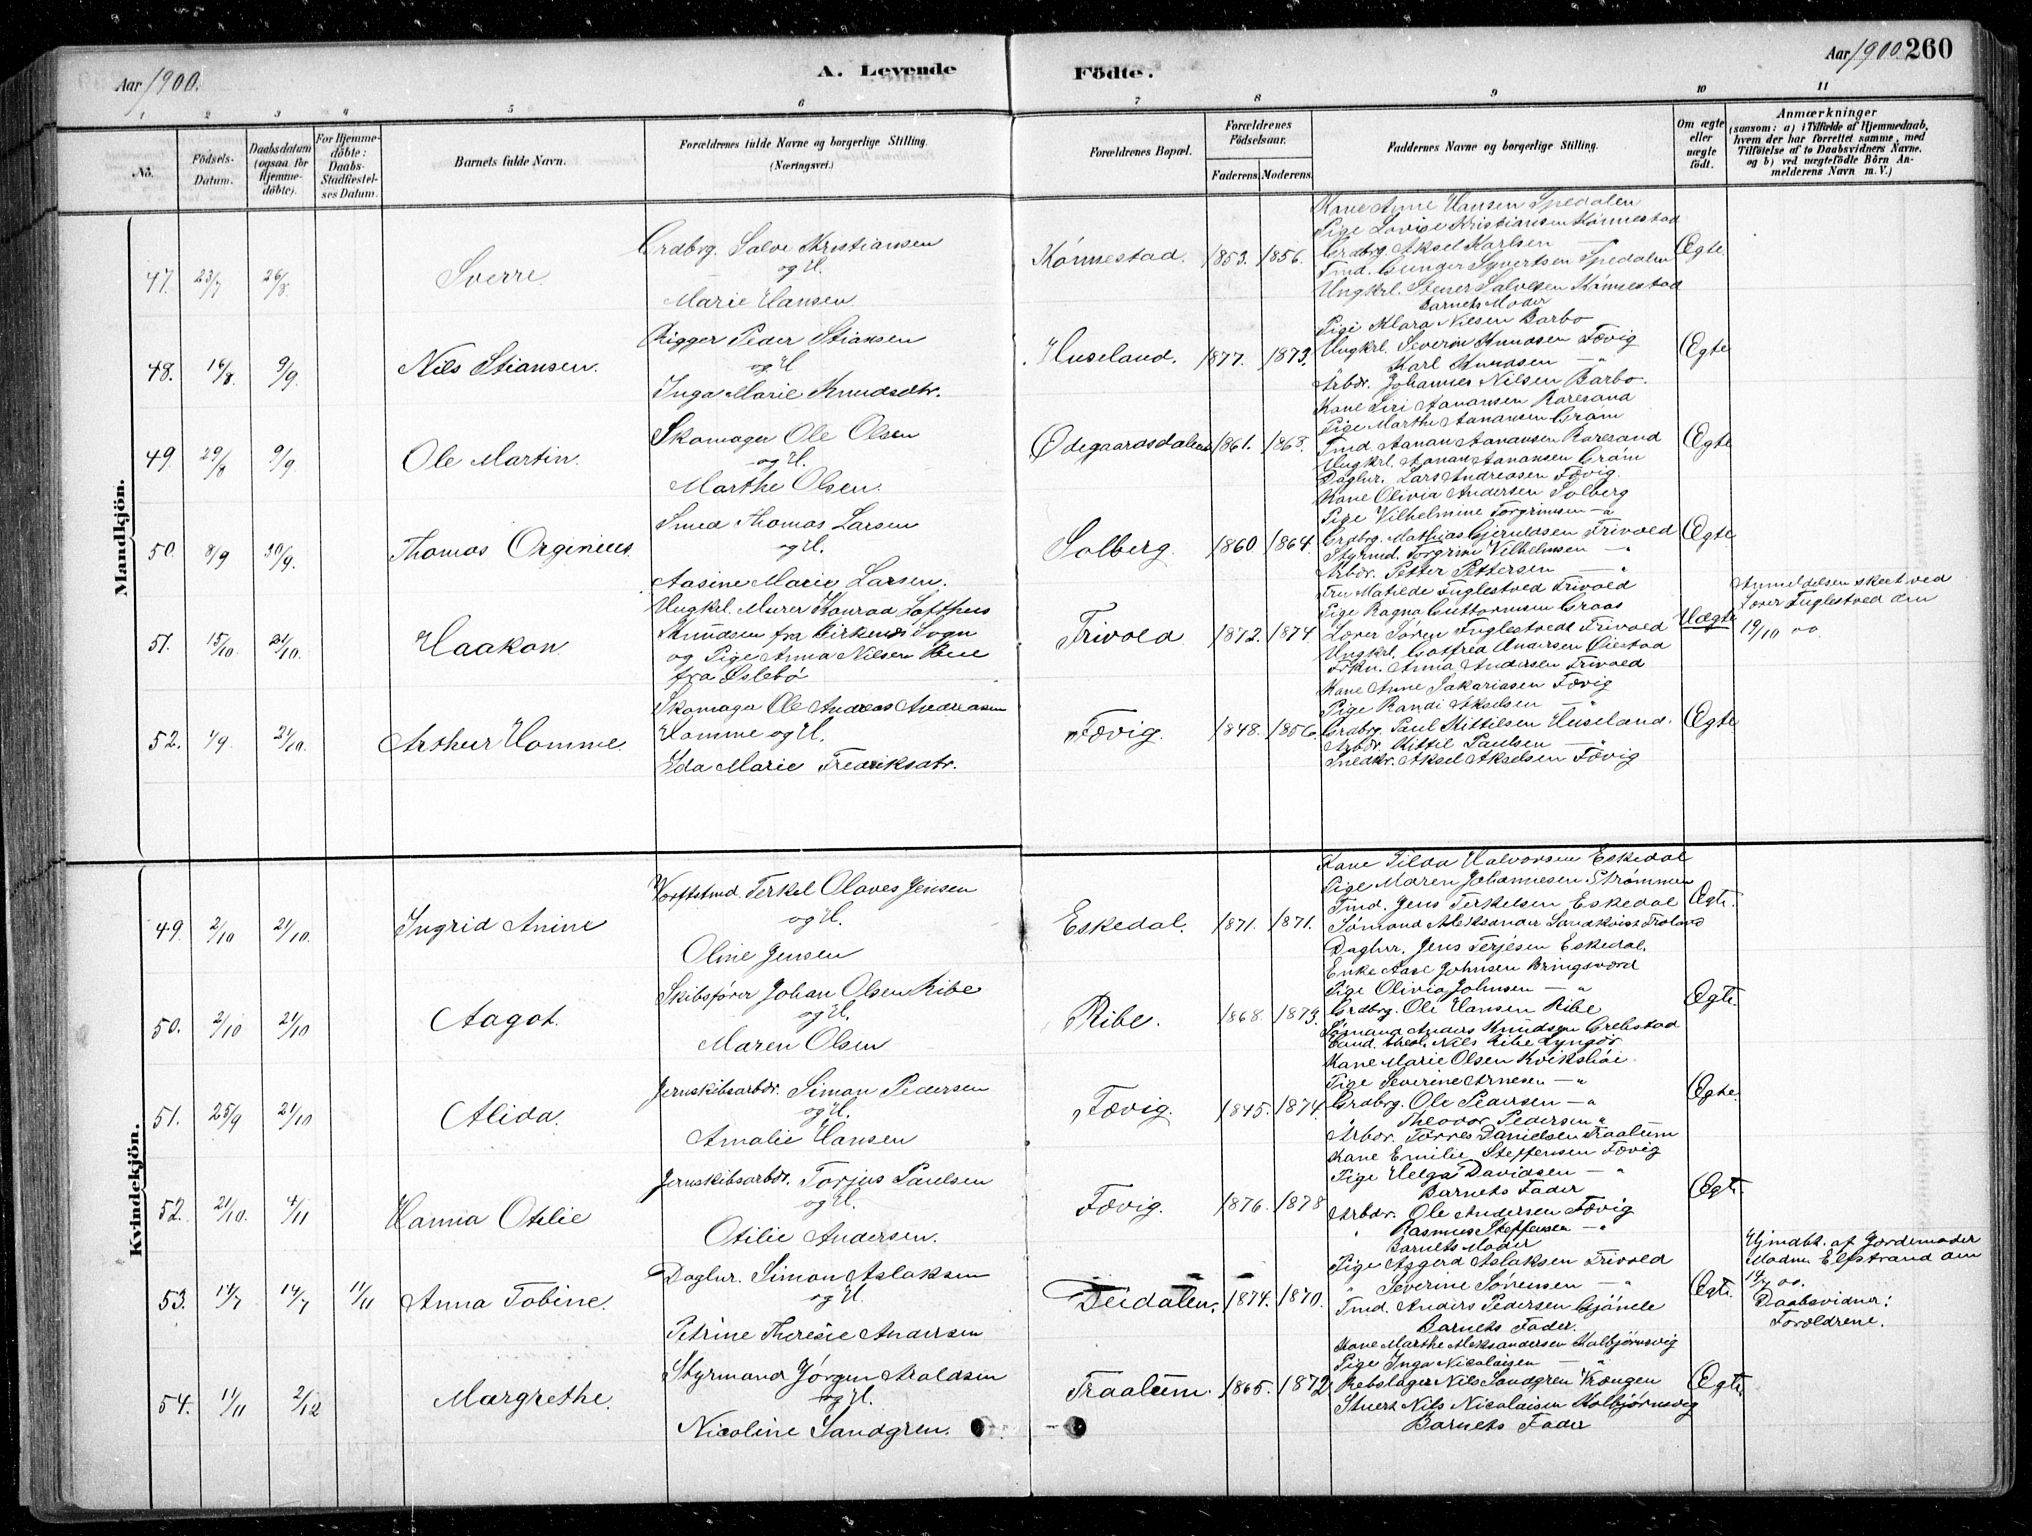 Aar 1900.
A. Levende
Födte.
Aar 1900. 260
1 2 3 4 5 6 7 8 9 10 11
No.
Födsels-Datum.
Daabsdatum (ogsaa for Hjemmedöbte).
For Hjemmedöbte: Daabs-Stadfæstelses Datum.
Barnets fulde Navn.
Forældrenes fulde Navne og borgerlige Stilling. (Næringsvei.)
Forældrenes Bopæl.
Forældrenes Födselsaar.
Faderens. Moderens.
Faddernes Navne og borgerlige Stilling.
Om ægte eller uægte födt.
Anmærkninger
(saasom: a) i Tilfælde af Hjemmedaab, hvem der har forrettet samme, med Tilföielse af to Daabsvidners Navne, og b) ved uægtefödte Börn Anmelderens Navn m. V.)
Mandkjön.
47. 23/7 26/8 Sverre.
Grdbrg. Salve Kristiansen
og H.
Marie Hansen
Kónnestad. 1853. 1856.
Kane Anne Hansen Spedalen
Pige Lovise Kristiansen Kónnestad
Grdbrg. Aksel Karlsen —
Tmd. Gunder Syvertsen Spedalen
Ungkrl. Stener Salvesen Kónnestad
Barnets Moder
Ægte
48. 16/8 9/9 Nils Stiansen.
Rigger Peder Stiansen
og H
Inga Marie Knudsdtr.
Huseland. 1877. 1873.
Pige Klara Nilsen Barbo
Ungkrl. Severin Knudsen Fævig
Karl Knudsen — "
Arbdr. Johannes Nilsen Barbo.
Ægte
49. 29/8 9/9 Ole Martin.
Skomager Ole Olsen
og H.
Marthe Olsen.
Ødegaardsdalen 1861. 1863.
Kane Siri Aanansen Raresand
Pige Marthe Aanansen Gram
Tmd Aanan Aanansen Raresand
Ungkrl. Aanan Aanansen Gróm
Daglnr. Lars Andreasen Fævig.
Ægte
50. 8/9 30/9. Thomas Orginius.
Smed Thomas Larsen
og H.
Aasine Marie Larsen.
Solberg. 1860 1864.
Kane Olivia Andersen Solberg
Pige Vilhelmine Torgrimsen — "
Grdbrg. Mathias Gjeruldsen Trivold
Styrmd. Torgrim Vilhelmsen — "
Arbdr. Petter Pettersen — "
Ægte.
51. 15/10. 21/10. Haakon
Ungkrl. Murer Konrad Lofthus
Knudsen fra Birkenæs Sogn
og Pige Anna Nilsen
fra Øslebó
Trivold 1872. 1874
Fru Matilde Fuglestved Trivold
Pige Ragna Guttormsen Graas
Lærer Sóren Fuglestvedt Trivold
Ungkrl. Gotfred Andersen Øiestad
Frkn. Anna Andersen Trivold
Uægte
Anmeldelsen skeet ved
Lærer Fuglestved den
19/10 00
52. 1/9. 21/10. Arthur Homme.
Skomager Ole Andreas Andreasen
Homme og H.
Ida Marie Fredriksdtr.
Fævig. 1848. 1856.
Kane Anne Sakariasen Fævig
Pige Randi Akselsen — "
Grdbrg. Paul Kittilsen Huseland.
Arbdr. Kittil Paulsen — "
Snedkr. Aksel Akselsen Fævig
Ægte
Kvindekjön.
49. 2/10 21/10. Ingrid Anine
Værftstmd. Terkel Olaves Jensen
og H.
Oline Jensen
Eskedal. 1871. 1871.
Kane Tilda Halvorsen Eskedal
Pige Maren Johannesen Strómmen
Tmd. Jens Terkelsen Eskedal
Sómand Aleksander Sandkvist Froland
Daglnr. Jens Terjesen Eskedal.
Ægte.
50. 2/10 21/10 Aagot.
Skibsfórer Johan Olsen Ribe
og H.
Maren Olsen
Ribe. 1868. 1873.
Enke Aase Johnsen Bringsværd
Pige Olivia Johnsen — "
Grdbrg. Ole Hansen Ribe
Sómand Anders Knudsen Grefstad
Cand. theol. Nils Ribe Lyngór
Ægte.
51. 25/9 21/10 Alida.
Jernskibsarbdr. Simon Pedersen
og H.
Amalie Hansen
Fævig. 1845. 1874.
Kane Marie Olsen Kvikshói
Pige Severine Arnesen — "
Grdbrg. Ole Pedersen — "
Theodor Pedersen "
Arbdr. Tórres Danielsen Traalum
Ægte.
52. 21/10. 4/11 Hanna Otilie
Jernskibsarbdr. Torjus Paulsen
og H.
Otilie Andersen.
Fævig. 1876. 1878
Kane Emilie Steffensen Fævig
Pige Helga Davidsen — "
Barnets Fader
Arbdr. Ole Andersen Fævig
" Rasmus Steffensen — "
Ægte.
53. 14/7 14/7 11/11 Anna Tobine.
Daglnr. Simon Aslaksen
og H
Petrine Theresie Andersen
Deidalen. 1874. 1870.
Barnets Moder
Pige Asgerd Aslaksen Trivold
" Severine Sórensen — "
Tmd. Anders Pedersen Gjónele
Barnets Fader.
Ægte.
Hjmdbt. af Jordemoder
Madm Elfstrand den
14/7 00.
Daabsvidner:
Forældrene.
54. 11/11 2/12 Margrethe.
Styrmand Jórgen Aroldsen
og H.
Nicoline Sandgren.
Traalum. 1865. 1872
Kane Marthe Aleksandersen Kalbjórnsvig
Pige Inga Nicolaisen — "
Rebslager Nils Sandgren Vrængen
Stuert Nils Nicolaisen Kolbjórnsvig
Barnets Fader
Ægte.